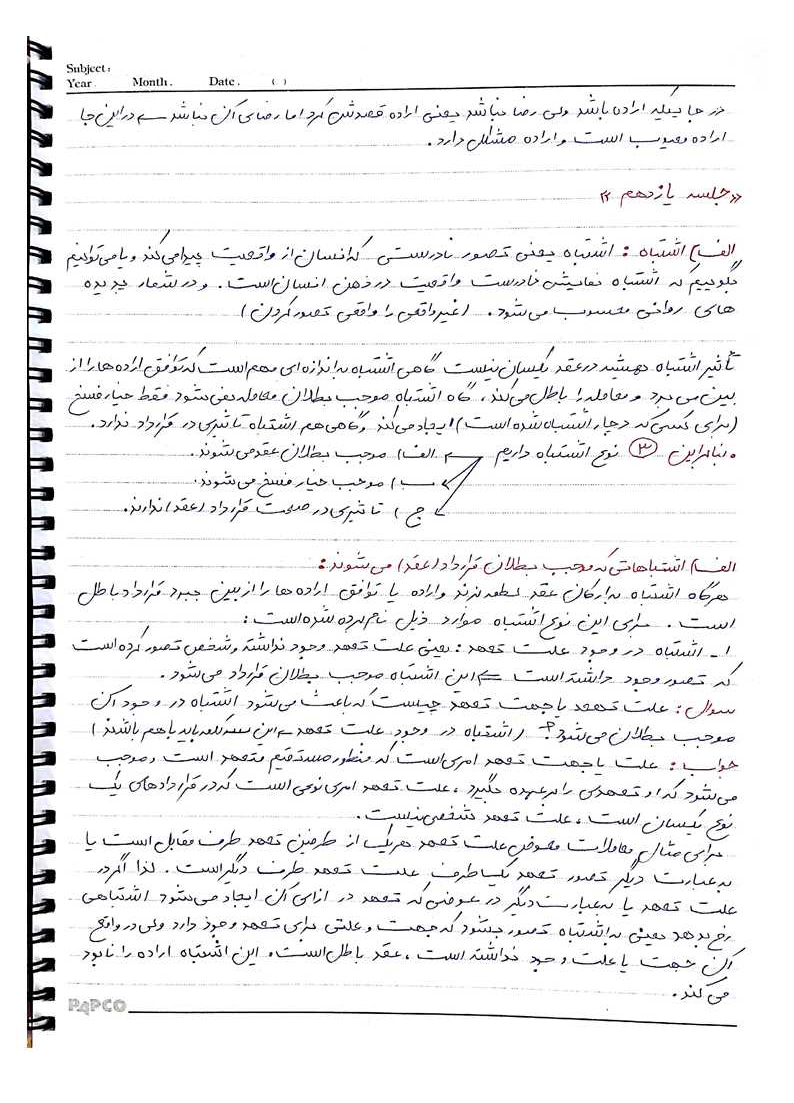 Subject:
Year. Month. Date. ( )
در جاییکه اراده باشد ولی رضا نباشد یعنی اراده قصدش کرد اما رضای آن نباشد ← در این جا
اراده معیوب است و اراده مشکل دارد.
«جلسه یازدهم»
الف) اشتباه: اشتباه یعنی تصور نادرستی که انسان از واقعیت پیدا می کند و یا می توانیم
بگوییم که اشتباه نمایش نادرست واقعیت در ذهن انسان است. و در شمار پدیده
های روانی محسوب می شود. (غیر واقعی را واقعی تصور کردن)
تأثیر اشتباه همیشه در عقد یکسان نیست گاهی اشتباه به اندازه ای مهم است که توافق اراده ها را از
بین می برد و معامله را باطل می کند، گاه اشتباه موجب بطلان معامله نمی شود فقط خیار فسخ
(برای کسی که دچار اشتباه شده است) ایجاد می کند و گاهی هم اشتباه تاثیری در قرارداد ندارد.
بنابراین ۳ نوع اشتباه داریم ← الف) موجب بطلان عقد می شوند.
ب) موجب خیار فسخ می شوند.
ج) تاثیری در صحت قرارداد (عقد) ندارند.
الف) اشتباهاتی که موجب بطلان قرارداد (عقد) می شوند:
هرگاه اشتباه به ارکان عقد لطمه بزند و اراده یا توافق اراده ها را از بین ببرد قرارداد باطل
است. برای این نوع اشتباه موارد ذیل نام برده شده است:
۱- اشتباه در وجود علت تعهد: یعنی علت تعهد وجود نداشته و شخص تصور کرده است
که تصور وجود داشته است ← این اشتباه موجب بطلان قرارداد می شود.
سوال: علت تعهد یا جهت تعهد چیست که باعث می شود اشتباه در وجود آن
موجب بطلان می شود؟ (اشتباه در وجود علت تعهد ← این سه کلمه باید با هم باشند)
جواب: علت یا جهت تعهد امری است که منظور مستقیم متعهد است و موجب
می شود که او تعهدی را بر عهده بگیرد، علت تعهد امری نوعی است که در قراردادهای یک
نوع یکسان است، علت تعهد شخصی نیست.
برای مثال معاملات معوض علت تعهد هر یک از طرفین تعهد طرف مقابل است یا
به عبارت دیگر تصور تعهد یک طرف علت تعهد طرف دیگر است. لذا اگر در
علت تعهد یا به عبارت دیگر در عوضی که تعهد در ازای آن ایجاد می شود اشتباهی
رخ بدهد یعنی به اشتباه تصور بشود که جهت و علتی برای تعهد وجود دارد ولی در واقع
آن جهت یا علت وجود نداشته است، عقد باطل است و این اشتباه اراده را نابود
می کند.
PAPCO